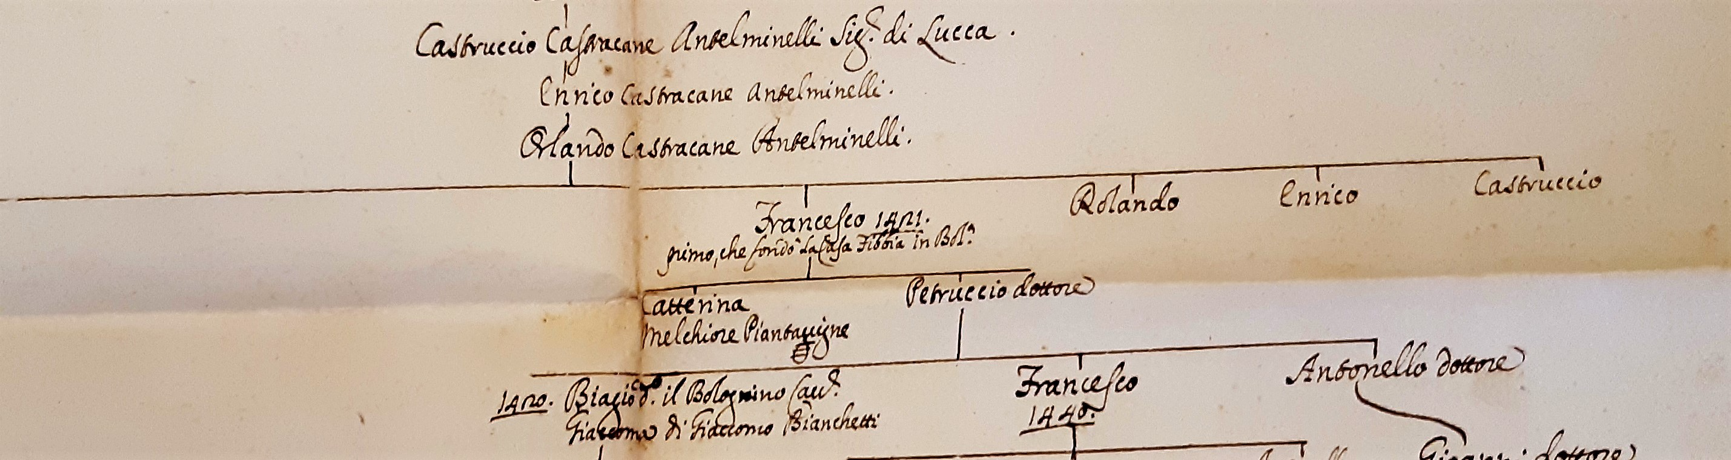 Castruccio Castracane Antelminelli Sig.e di Lucca.
Enrico Castracane Antelminelli.
Orlando Castracane Antelminelli.
Francesco 1421.
Rolando
Enrico
Castruccio
primo, che fondò la Casa Fibbia in Bol.a
Catterina
Petruccio dottore
Melchiore Piantavigne
1420. Biagio d.o il Bolognino Cav.e
Francesco
Antonello dottore
Giacoma di Giacomo Bianchetti
1440.
dottore